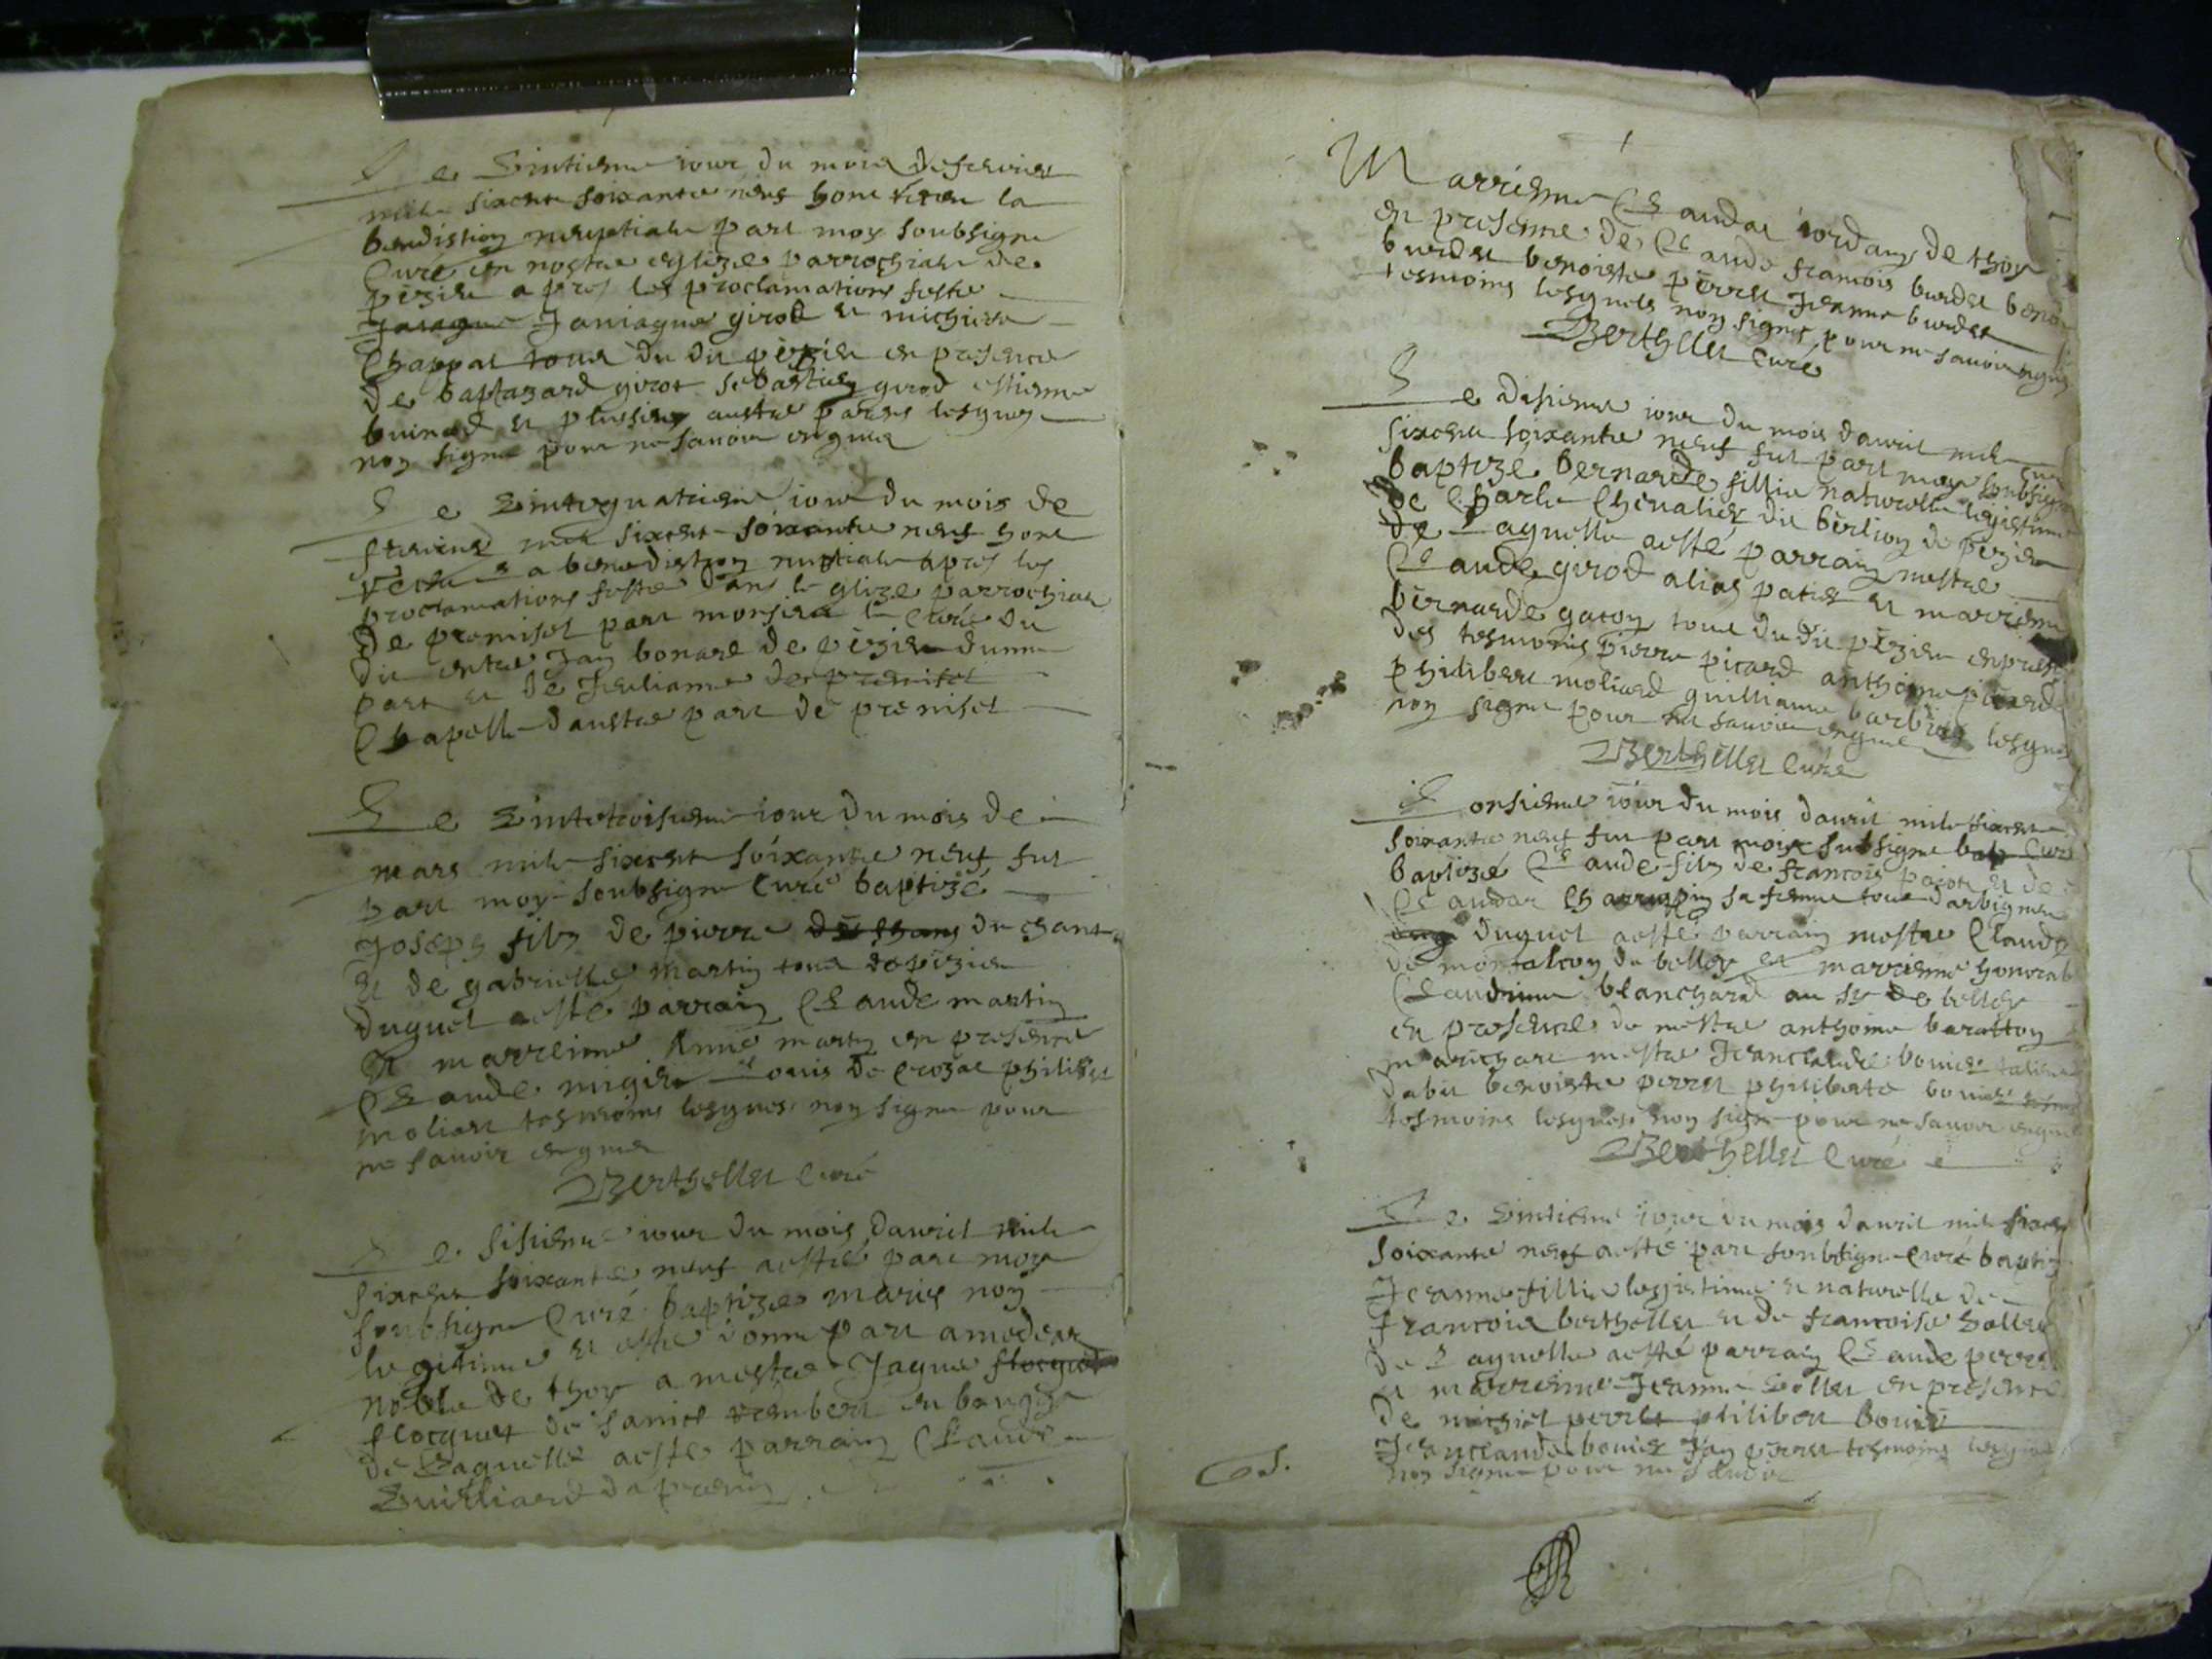 Le vintiesme iour du mois de fevrier
mile sixcent soixante neuf hont receu la
benediction nuptiale part moy soubsigne
Curé en nostre esglize parrochiale de
pezieu apres les proclamations feste
Janiague Janiague girod et michiere
Chappat tous du dit pezieu en presence
de baptazard girot sebastien girod estienne
buinod et plusieurs austre parans lesques
non signe pour ne savoir enquis
Le vintequatriesme iour du mois de
fevrier mil sixcent soixante neuf hont
receu la benediction nuptiale apres les
proclamations feste dans leglize parrochiale
de premisel part monsieur le Curé du
dit entre Jan bonard de pezieu dunne
part et de Juliame de premisel
Chapelle daustre part de premisel
Le vintetroisiesme iour du mois de
mars mile sixcent soixante neuf fut
part moy soubsigne Curé baptizé
Joseph filz de pierre du chant
et de gabrielle martin tous de pezieu
duquel aesté parrain Claude martin
et marreinne Anne martin en presence
Claude migieu Louis de crozat philibert
moliart tesmoins lesques non signe pour
ne savoir enquis
Berthellet Curé
Le sisiesme iour du mois davril mile
sixcent soixante neuf aesté part moy
soubsigne Curé baptizé marie non
legitime et esté donne part amodear
noble de thoy a mestre Jaque flocquet
flocquet de sanict rembert en bougey
de Laquelle aesté parrain Claude
vuilliard de premis
Marriesme Claudat iordang de thoy
en presenne de Claude francois burdet benoi
burdet benoiste perret Jeanne burdet
tesmoins lesquels non signes pour ne savoir enquis
Berthellet Curé
Le disiesme iour du mois davril mile
sixcent soixante neuf fut part moy soubsigne
baptizé bernarde fillie naturelle legistime
de Charle Chevalier dit berlion de pezieu
de Laquelle aesté parrain mestre
Claude girod alias patier et marrienne
bernarde gacon tous du dit pezieu en prese
des tesmonis pierre picard anthoine picard
philibert moliard guilliaume barbier lesques
non signe pour ne savoir enquis
Berthellet Curé
Le onsiesme iour du mois davril mile sixcent
soixante neuf fut part moy subsigne bap Curé
baptizé Claude filz de francois pajot et de
Claudat Charrappin sa femme tous darbignieu
duquel aesté parrain mestre Claude
de montalcon de belley et marrienne honorab
Claudinne blanchard au sy de belley
en presence de mestre anthoine baratton
marichare mestre Jeanclaude bonier
dabit benoiste perret philiberte bonier
tesmoins lesques non signe pour ne savoir enquis
Berthellet Curé
Le vintiesme iour du mois davril mile sixcen
soixante neuf aesté part soubsigne Curé baptiz
Jeanne fillie legistime et naturelle de
francois berthellet et de francoise vollet
de Laquelle aesté parrain Claude perret
et marrienne Jeanne vollet en presence
de michiel perret philibert bonier
Jeanclaude bonier Jan perret tesmoins lesques
non signe pour ne savoir